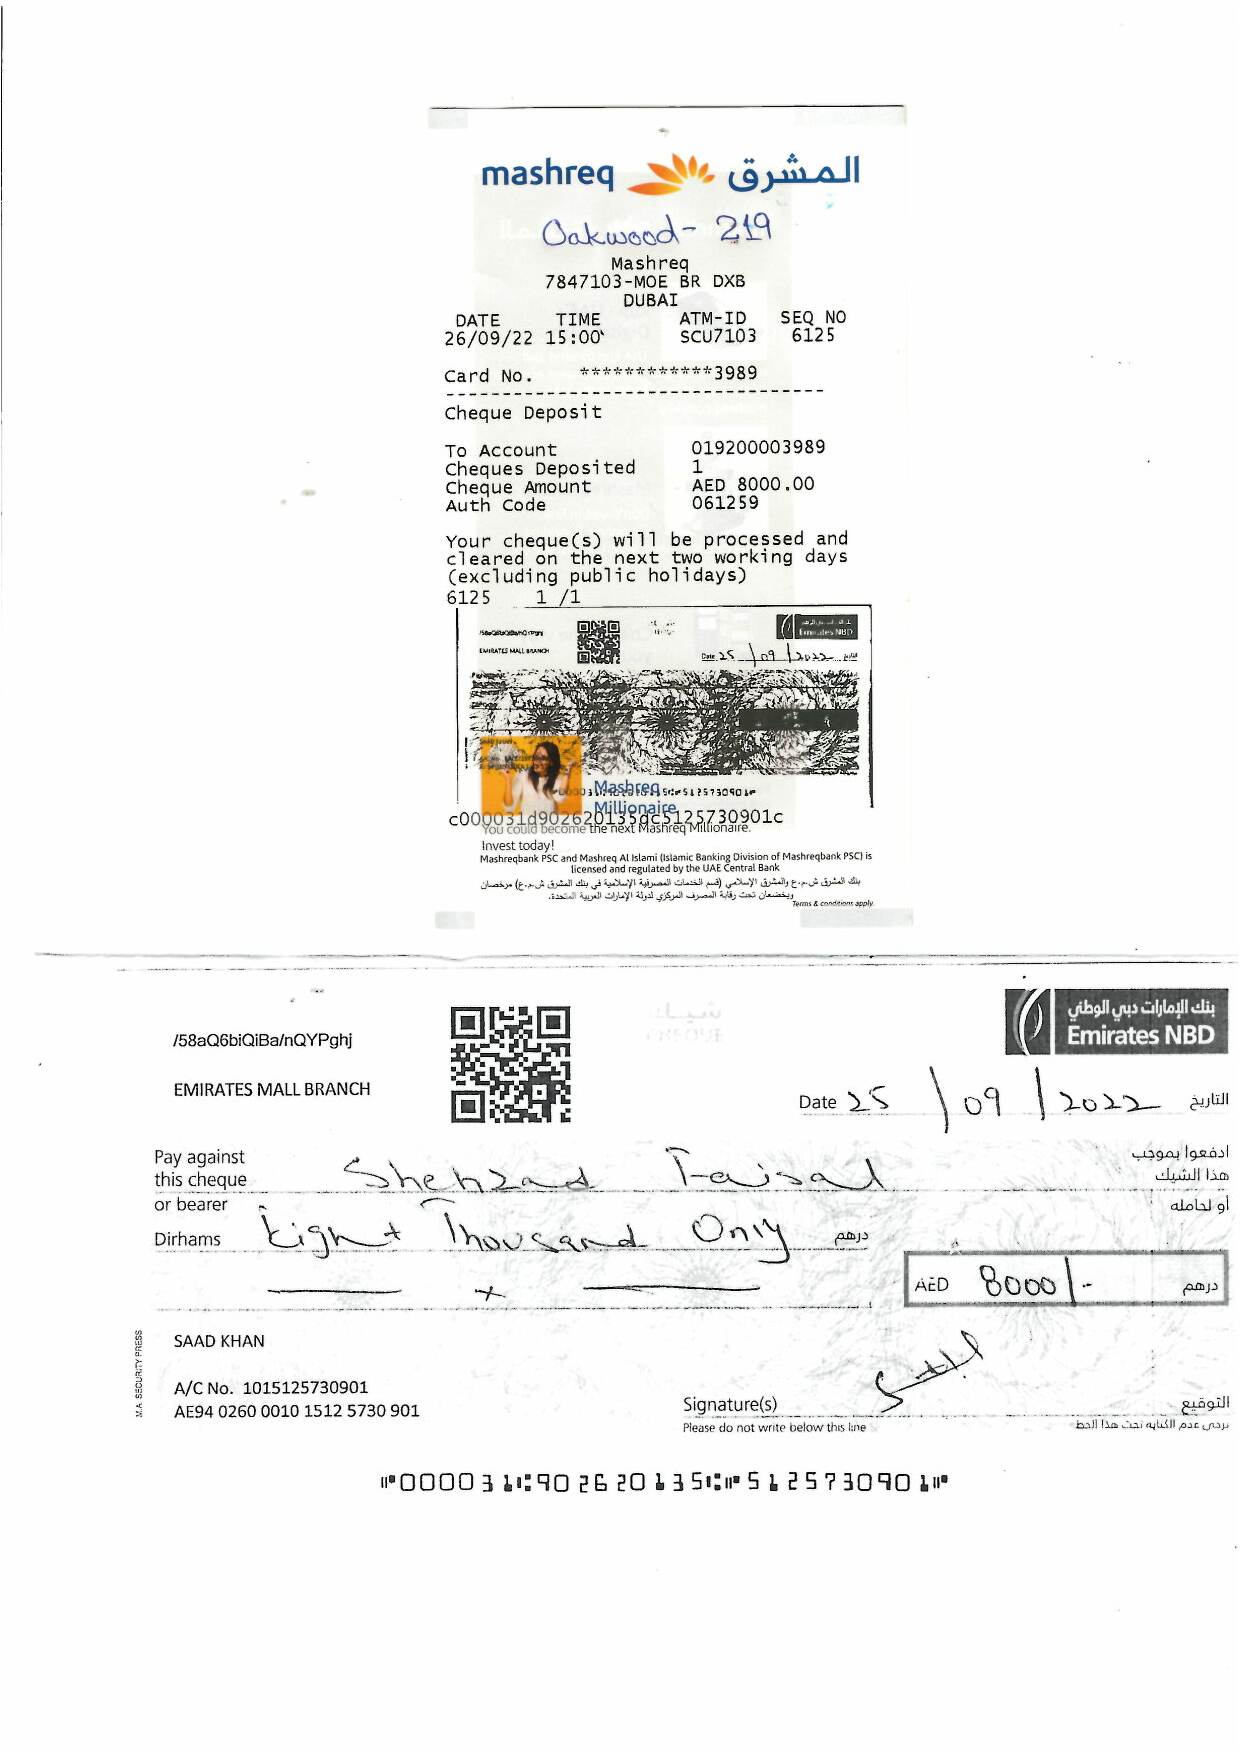 mashreq المشرق
Oakwood - 219
Mashreq
7847103-MOE BR DXB
DUBAI
DATE TIME ATM-ID SEQ NO
26/09/22 15:00 SCU7103 6125
Card No. ************3989
---------------------------------
Cheque Deposit
To Account 019200003989
Cheques Deposited 1
Cheque Amount AED 8000.00
Auth Code 061259
Your cheque(s) will be processed and
cleared on the next two working days
(excluding public holidays)
6125 1 /1
/58aQ6biQiBa/nQYPghj
Emirates NBD
EMIRATES MALL BRANCH
Date 25/09/2022 التاريخ
Mashreq
Millionaire
c000031d902620135dc5125730901c
You could become the next Mashreq Millionaire.
Invest today!
Mashreqbank PSC and Mashreq Al Islami (Islamic Banking Division of Mashreqbank PSC) is
licensed and regulated by the UAE Central Bank
بنك المشرق ش.م.ع والمشرق الإسلامي (قسم الخدمات المصرفية الإسلامية في بنك المشرق ش.م.ع) مرخصان
ويخضعان تحت رقابة المصرف المركزي لدولة الإمارات العربية المتحدة.
Terms & conditions apply.
بنك الإمارات دبي الوطني
Emirates NBD
/58aQ6biQiBa/nQYPghj
EMIRATES MALL BRANCH
Date 25/09/2022 التاريخ
Pay against ادفعوا بموجب
this cheque Shehzad Faisal هذا الشيك
or bearer أو لحامله
Dirhams Eight Thousand Only درهم
AED 8000/- درهم
SAAD KHAN
A/C No. 1015125730901
AE94 0260 0010 1512 5730 901
Signature(s) التوقيع
Please do not write below this line يرجى عدم الكتابة تحت هذا الخط
M.A. SECURITY PRESS
⑈000031⑆902620135⑆⑈5125730901⑈